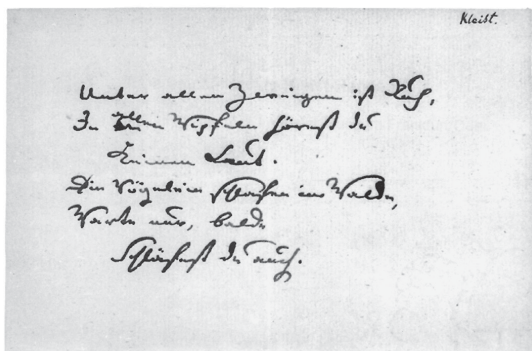 Kleist.
Unter allen Zweigen ist Ruh,
In allen Wipfeln hörest Du
Keinen Laut.
Die Vögelein schlafen im Walde,
Warte nur, balde
Schläfest Du auch.